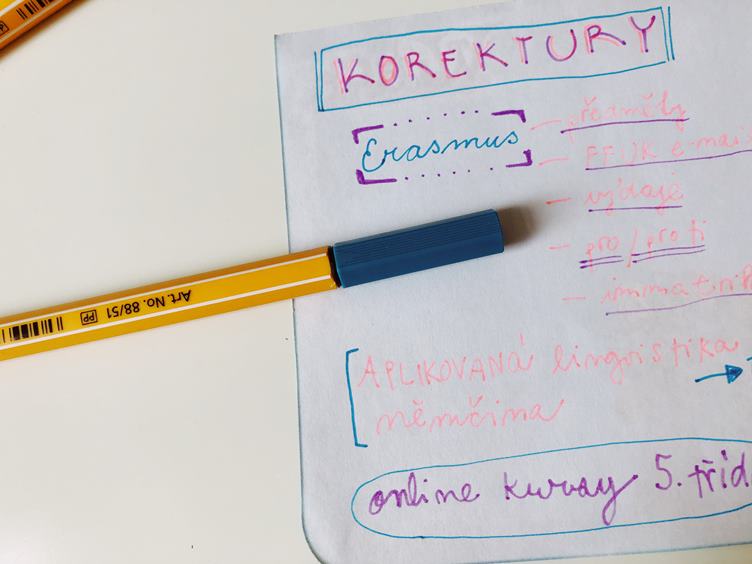 KOREKTURY
Erasmus
- předměty
- FF:JK e-mail
- výdaje
- pro / proti
- immatrik
APLIKOVANÁ lingvistika →
němčina
online kurzy 5. tříd
Art. No. 88/51 PP